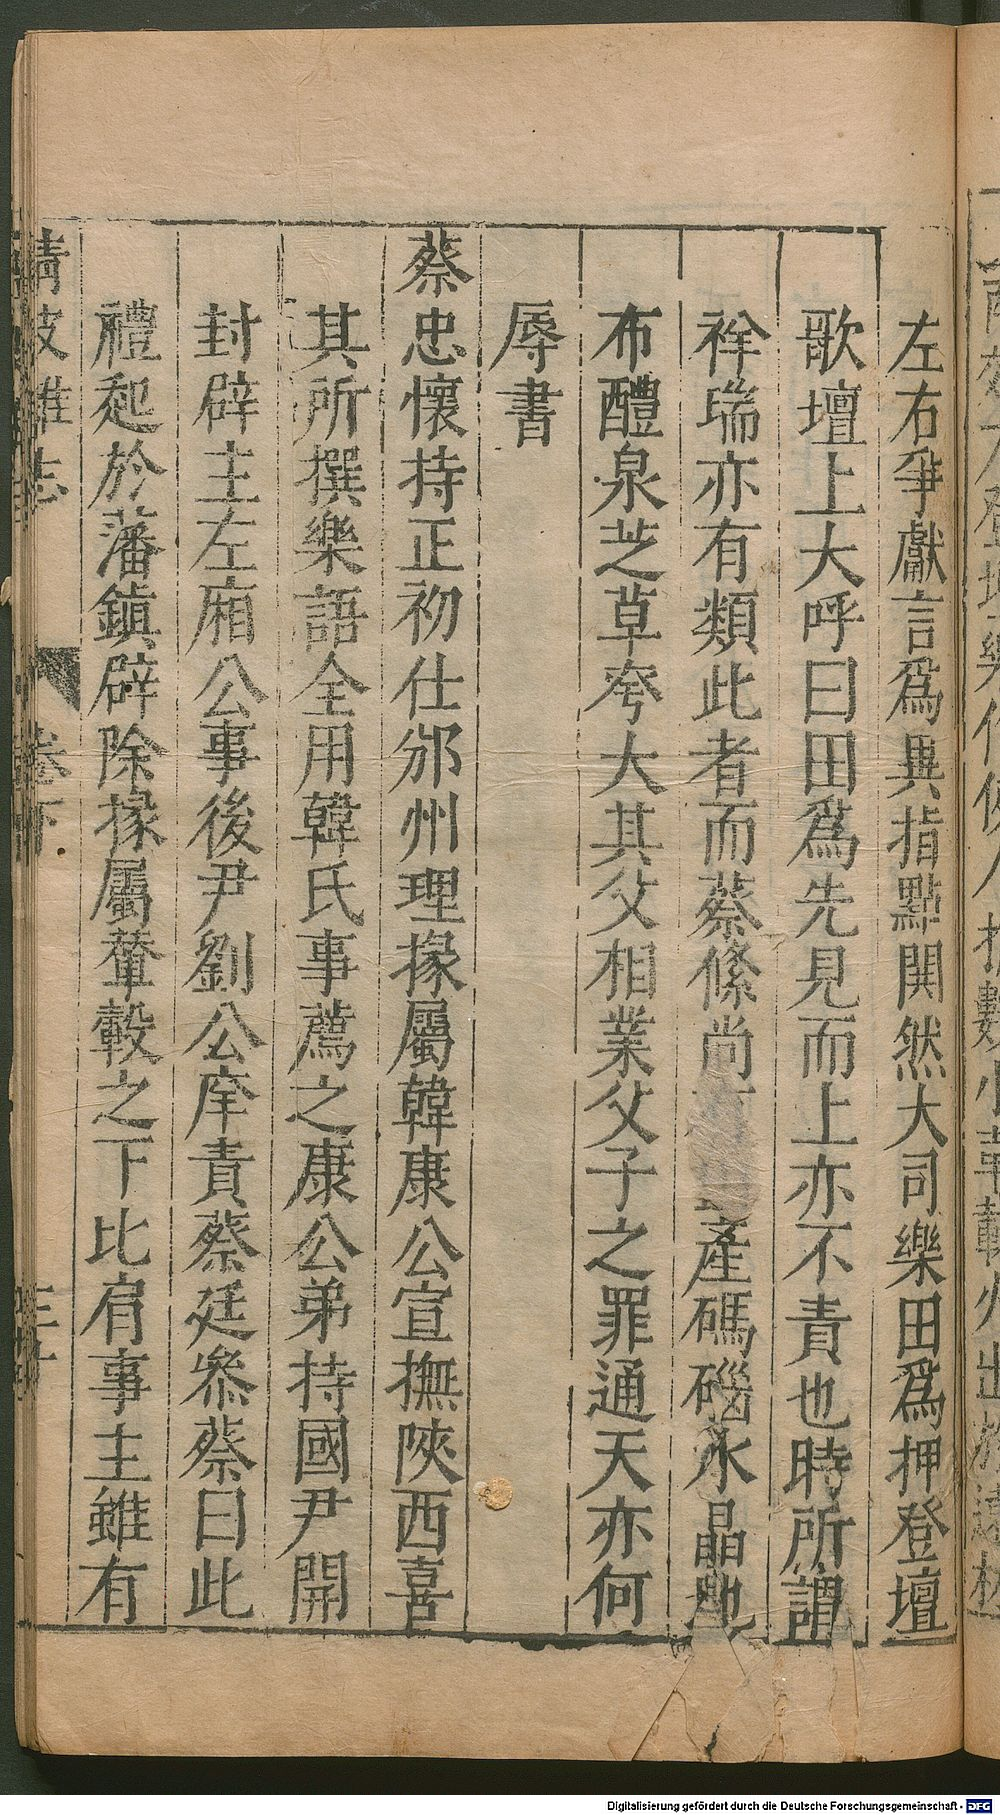 左右爭獻言爲異指點閧然大司樂田爲押登壇
歌壇上大呼曰田爲先見而上亦不責也時所謂
祥瑞亦有類此者而蔡絛尚產碼碯水晶地
布醴泉芝草夸大其父相業父子之罪通天亦何
辱書
蔡忠懷持正初仕邠州理掾屬韓康公宣撫陝西喜
其所撰樂語全用韓氏事薦之康公弟持國尹開
封辟主左廂公事後尹劉公庠責蔡廷叅蔡曰此
禮起於藩鎮辟除掾屬輦轂之下比肩事主雖有
清波雜志 卷下
Digitalisierung gefördert durch die Deutsche Forschungsgemeinschaft - DFG